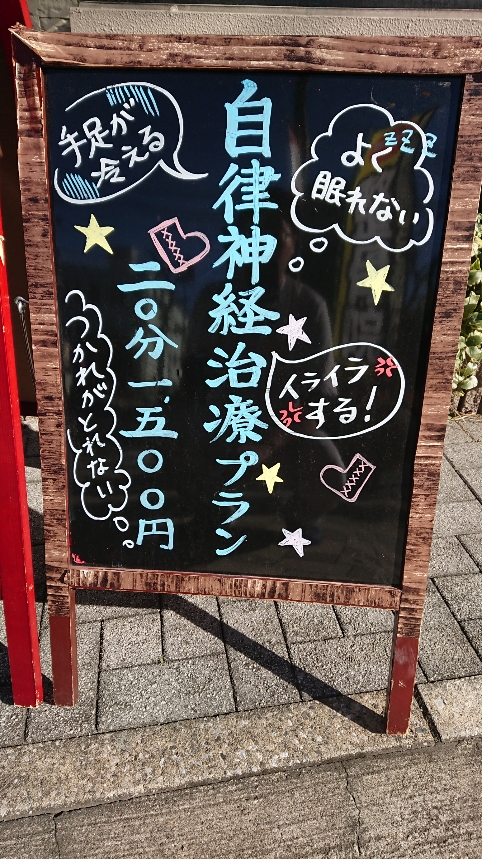 自律神経治療プラン
二〇分一、五〇〇円
手足が
冷える
よく
zzz
眠れない
イライラ
する!
つかれがとれない